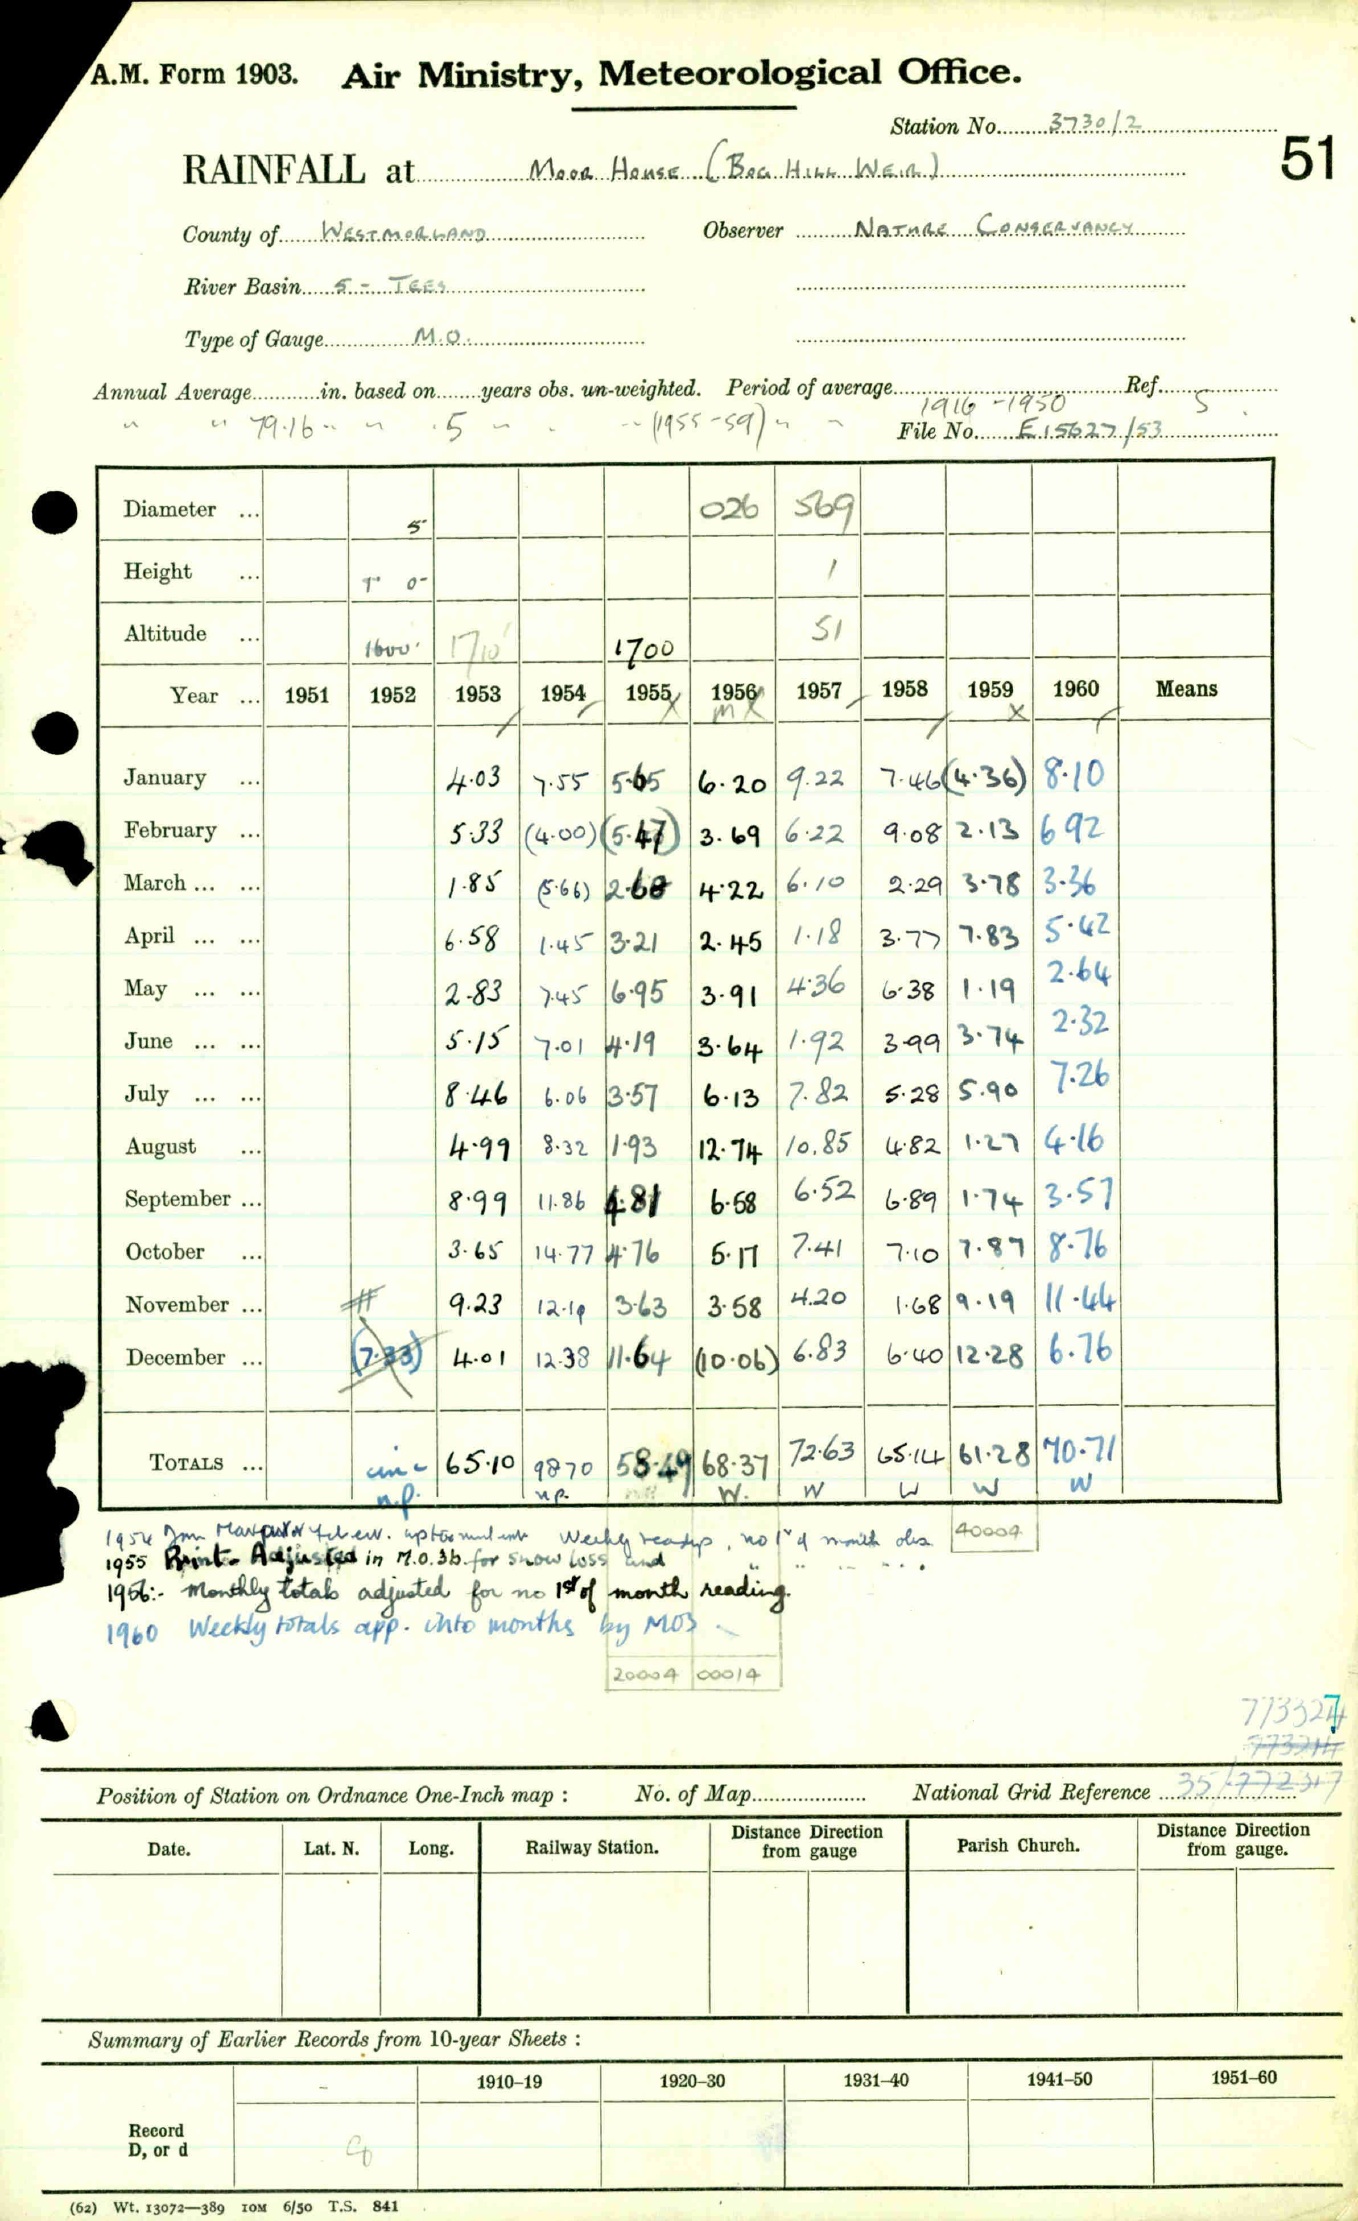 A.M. Form 1903. Air Ministry, Meteorological Office.
Station No. 3730/2
51
RAINFALL at Moor House (Bog Hill Weir)
County of Westmorland Observer Nature Conservancy
River Basin 5 - Tees
Type of Gauge M.O.
Annual Average in. based on years obs. un-weighted. Period of average 1916-1950 Ref. 5
" " 79.16 " " 5 " " (1955-59) " "
File No. E15627/53
Diameter ... 5 026 569
Height ... 1' 0" 1
Altitude ... 1600' 1710' 1700 51
Year ... 1951 1952 1953 1954 1955 1956 1957 1958 1959 1960 Means
x m x x
January ... 4.03 7.55 5.65 6.20 9.22 7.46 (4.36) 8.10
February ... 5.33 (4.00) (5.47) 3.69 6.22 9.08 2.13 6.92
March ... ... 1.85 (5.66) 2.68 4.22 6.10 2.29 3.78 3.36
April ... ... 6.58 1.45 3.21 2.45 1.18 3.77 7.83 5.42
May ... ... 2.83 7.45 6.95 3.91 4.36 6.38 1.19 2.64
June ... ... 5.15 7.01 4.19 3.64 1.92 3.99 3.74 2.32
July ... ... 8.46 6.06 3.57 6.13 7.82 5.28 5.90 7.26
August ... 4.99 8.32 1.93 12.74 10.85 4.82 1.27 4.16
September ... 8.99 11.86 4.81 6.58 6.52 6.89 1.74 3.57
October ... 3.65 14.77 4.76 5.17 7.41 7.10 7.87 8.76
November ... 9.23 12.19 3.63 3.58 4.20 1.68 9.19 11.44
December ... (7.33) 4.01 12.38 11.64 (10.06) 6.83 6.40 12.28 6.76
Totals ... inc 65.10 98.70 58.49 68.37 72.63 65.14 61.28 70.71
n.p. n.p. W. W W W W
1954 Weekly readgs, no 1st of month obs 40004
1955 Print. Adjusted in M.O.3b. for snow loss and " " " "
1956:- Monthly totals adjusted for no 1st of month reading.
1960 Weekly totals app. into months by MO3
20004 00014
773327
773217
Position of Station on Ordnance One-Inch map : No. of Map National Grid Reference 35/772317
Date. Lat. N. Long. Railway Station. Distance from gauge Direction Parish Church. Distance from gauge. Direction
Summary of Earlier Records from 10-year Sheets :
- 1910–19 1920–30 1931–40 1941–50 1951–60
Record D, or d
(62) Wt. 13072—389 10M 6/50 T.S. 841